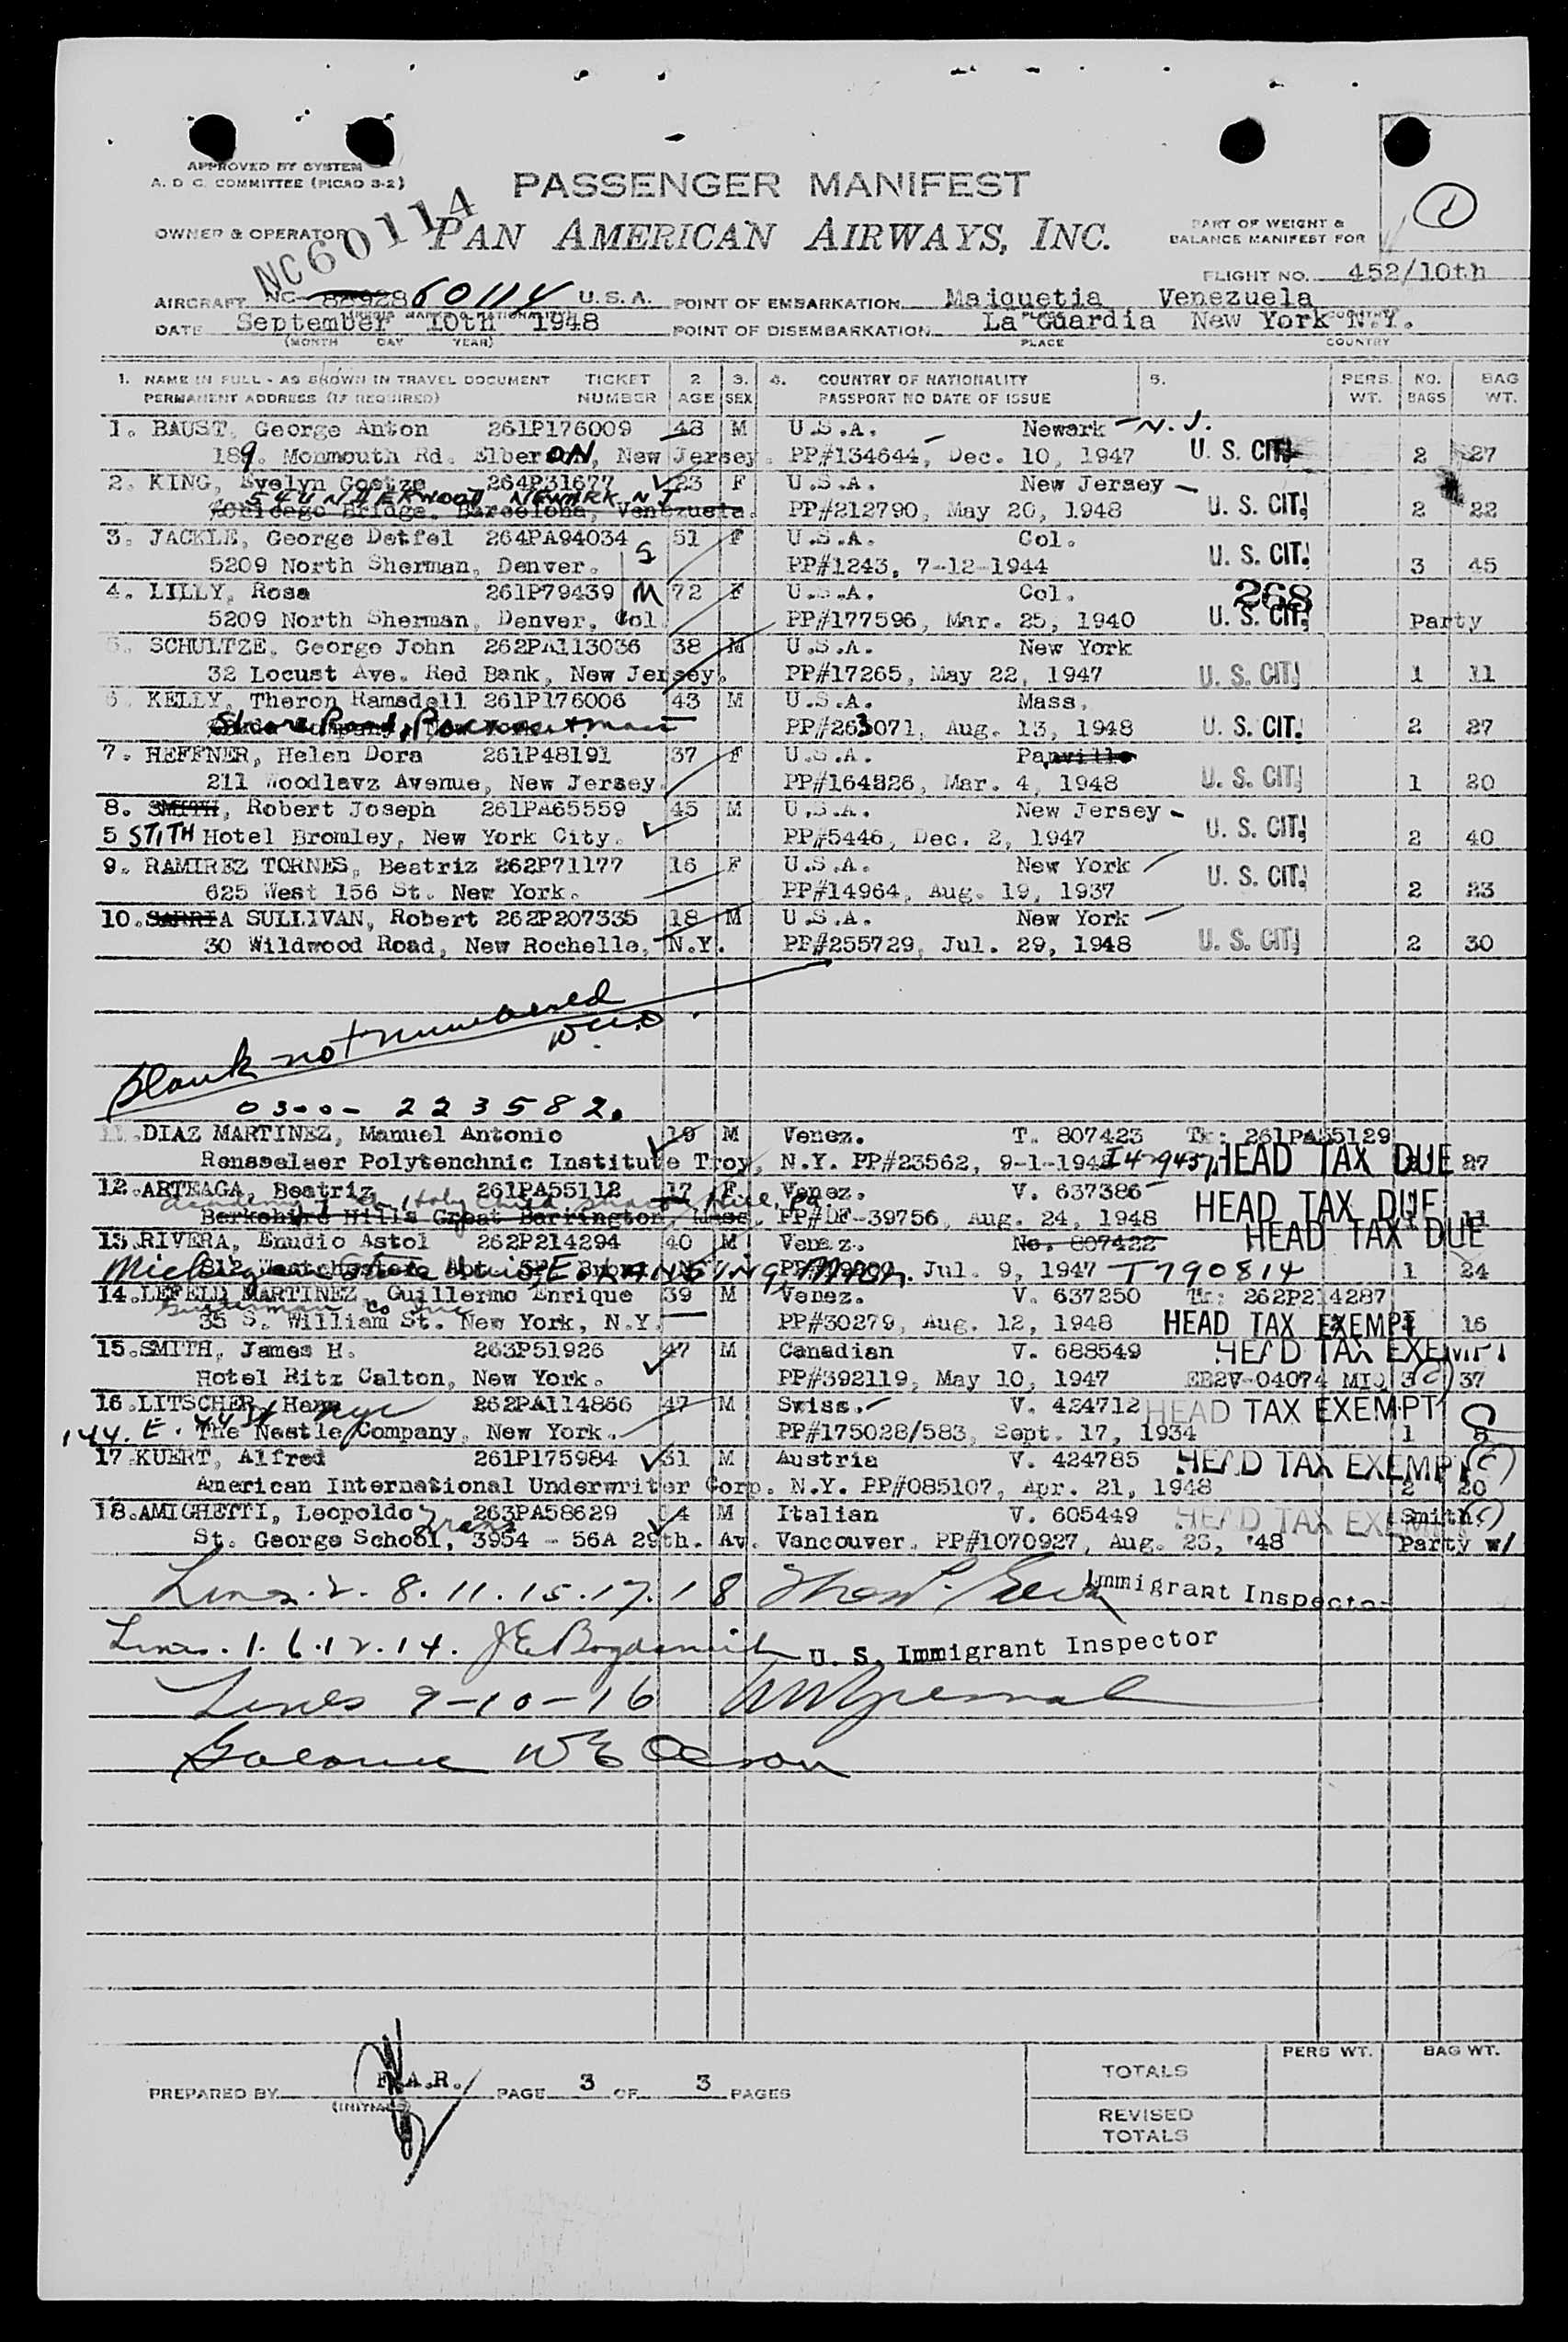 APPROVED BY SYSTEM
A. D C. COMMITTEE (PICAO 3-2)
PASSENGER MANIFEST
NC60114
OWNER & OPERATOR PAN AMERICAN AIRWAYS, INC.
PART OF WEIGHT &
BALANCE MANIFEST FOR
1
FLIGHT NO. 452/10th
AIRCRAFT NC 88928 60114 U.S.A. POINT OF EMBARKATION Maiquetia Venezuela
DATE September 10th 1948 POINT OF DISEMBARKATION La Guardia New York N.Y.
(MONTH DAY YEAR) PLACE COUNTRY
1. NAME IN FULL - AS SHOWN IN TRAVEL DOCUMENT TICKET 2 3. 4. COUNTRY OF NATIONALITY 5. PERS. NO. BAG
PERMANENT ADDRESS (IF REQUIRED) NUMBER AGE SEX PASSPORT NO DATE OF ISSUE WT. BAGS WT.
1. BAUST, George Anton 261P176009 48 M U.S.A. Newark N.J.
189. Monmouth Rd. ElberON, New Jersey. PP#134644, Dec. 10, 1947 U. S. CIT. 2 27
2. KING, Evelyn Goetze 264P31677 23 F U.S.A. New Jersey
544 N. NEWARK N J
Chicago Bridge. Barcelona, Venezuela. PP#212790, May 20, 1948 U. S. CIT. 2 22
3. JACKLE, George Detfel 264PA94034 S 51 F U.S.A. Col.
5209 North Sherman, Denver. PP#1243, 7-12-1944 U. S. CIT. 3 45
4. LILLY, Rosa 261P79439 M 72 F U.S.A. Col. 268
5209 North Sherman, Denver, Col. PP#177596, Mar. 25, 1940 U. S. CIT. Party
5. SCHULTZE, George John 262PA113036 38 M U.S.A. New York
32 Locust Ave. Red Bank, New Jersey. PP#17265, May 22, 1947 U. S. CIT. 1 11
6. KELLY, Theron Ramsdell 261P176006 43 M U.S.A. Mass.
Shore Road, PP#263071, Aug. 13, 1948 U. S. CIT. 2 27
7. HEFFNER, Helen Dora 261P48191 37 F U.S.A. Panville
211 Woodlavz Avenue, New Jersey. PP#164826, Mar. 4, 1948 U. S. CIT. 1 20
8. SMITH, Robert Joseph 261PA65559 45 M U.S.A. New Jersey
5 STITH Hotel Bromley, New York City. PP#5446, Dec. 2, 1947 U. S. CIT. 2 40
9. RAMIREZ TORNES, Beatriz 262P71177 16 F U.S.A. New York
625 West 156 St. New York. PP#14964, Aug. 19, 1937 U. S. CIT. 2 23
10. SARRIA SULLIVAN, Robert 262P207335 18 M U.S.A. New York
30 Wildwood Road, New Rochelle, N.Y. PP#255729, Jul. 29, 1948 U. S. CIT. 2 30
Blank not numbered
0300- 223582.
11. DIAZ MARTINEZ, Manuel Antonio 19 M Venez. T. 807423 Tk: 261PA55129
Rensselaer Polytenchnic Institute Troy, N.Y. PP#23562, 9-1-1948 HEAD TAX DUE 27
12. ARTEAGA, Beatriz 261PA55112 17 F Venez. V. 637386
Academy Holy Child Hill, Pa
Berkshire Hills Great Barrington, Mass. PP#DF-39756, Aug. 24, 1948 HEAD TAX DUE
13. RIVERA, Enudio Astol 262P214294 40 M Venez. No. 807422 HEAD TAX DUE
Michigan State E. LANSING, Mich. Jul. 9, 1947 T790814 1 24
14. LEFELD MARTINEZ, Guillermo Enrique 39 M Venez. V. 637250 Tk: 262P214287
35 S. William St. New York, N.Y. PP#30279, Aug. 12, 1948 HEAD TAX EXEMPT 16
15. SMITH, James H. 263P51926 47 M Canadian V. 688549 HEAD TAX EXEMPT
Hotel Ritz Calton, New York. PP#392119, May 10, 1947 EB2V-04074 MIQ 3 37
16. LITSCHER, Hans 262PA114866 47 M Swiss. V. 424712 HEAD TAX EXEMPT
144. E. 44 St NYC The Nestle Company, New York. PP#175028/583, Sept. 17, 1934 1
17. KUERT, Alfred 261P175984 31 M Austria V. 424785 HEAD TAX EXEMPT
American International Underwriter Corp. N.Y. PP#085107, Apr. 21, 1948 2 20
18. AMIGHETTI, Leopoldo 263PA58629 4 M Italian V. 605449 HEAD TAX EXEMPT Smith
St. George School, 3954 - 56A 29th. Av. Vancouver. PP#1070927, Aug. 23, '48 Party w/
Lines. 2. 8. 11. 15. 17. 18 Immigrant Inspector
Lines. 1. 6. 12. 14. U. S. Immigrant Inspector
Lines 9-10-16
Balance W E Olsson
PREPARED BY F.A.R. PAGE 3 OF 3 PAGES
(INITIALS)
PERS WT. BAG WT.
TOTALS
REVISED
TOTALS